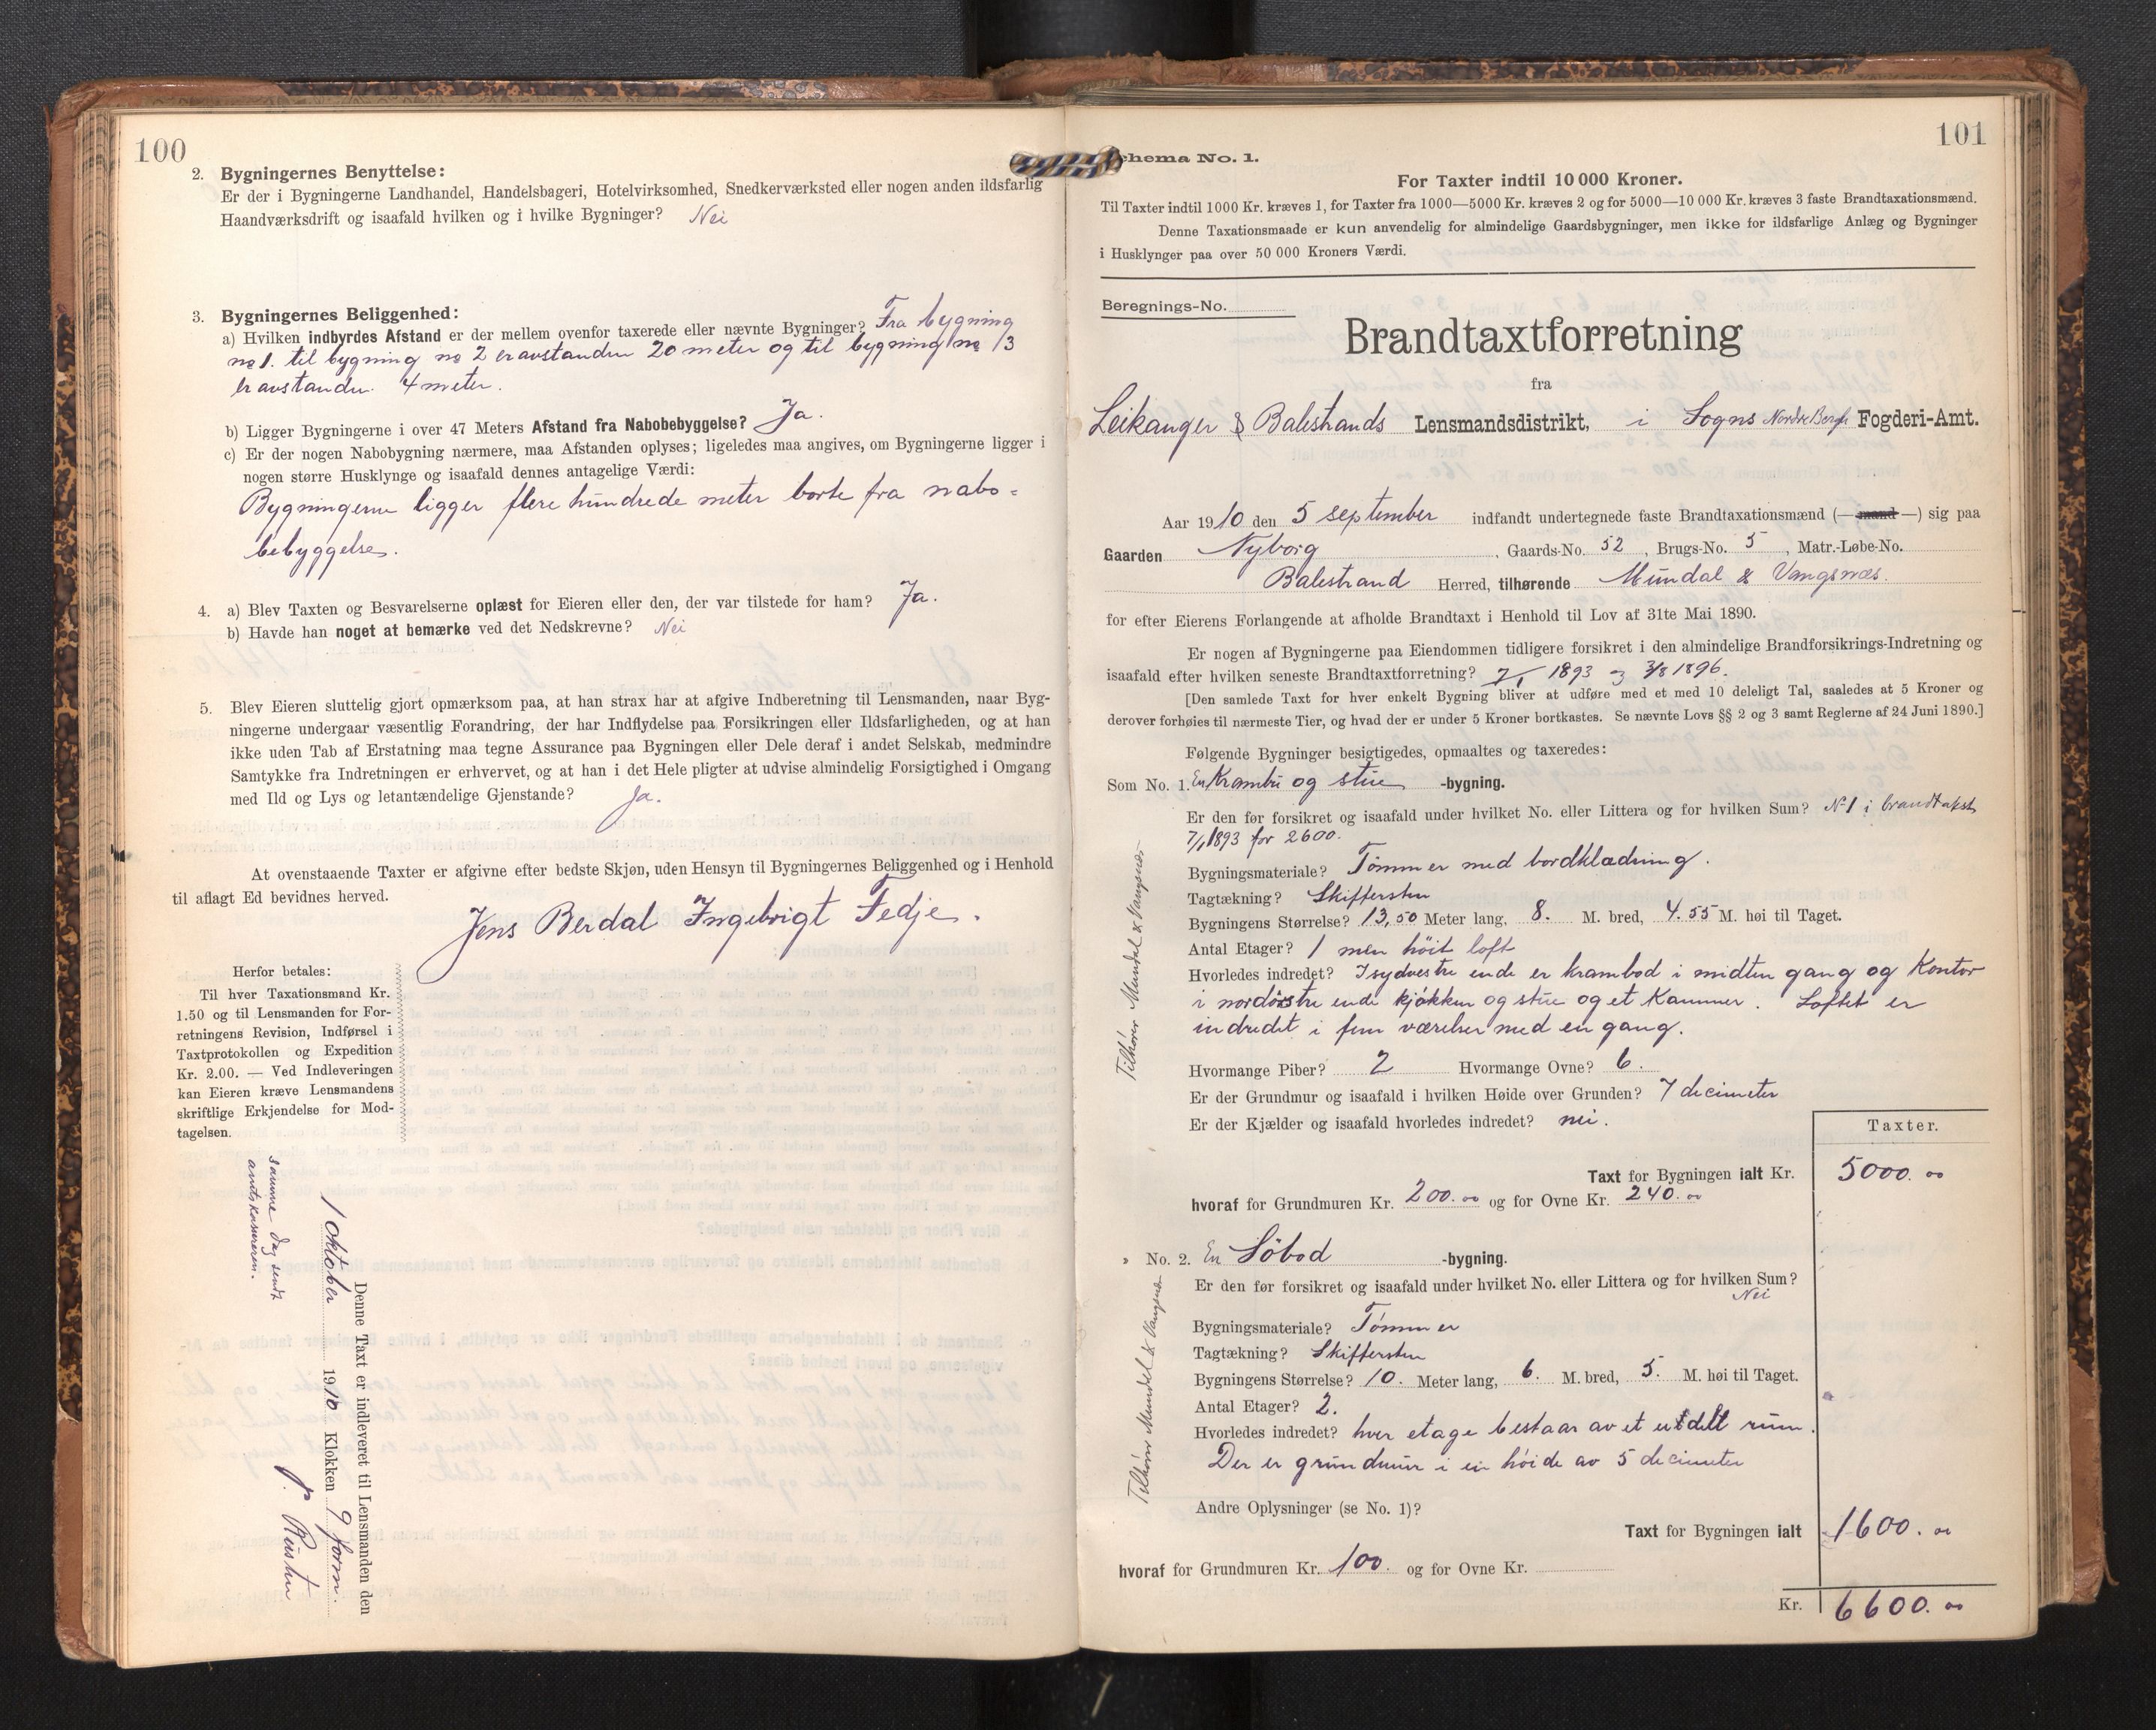 100
2. Bygningernes Benyttelse:
Er der i Bygningerne Landhandel, Handelsbageri, Hotelvirksomhed, Snedkerværksted eller nogen anden ildsfarlig
Haandværksdrift og isaafald hvilken og i hvilke Bygninger? Nei
3. Bygningernes Beliggenhed:
a) Hvilken indbyrdes Afstand er der mellem ovenfor taxerede eller nævnte Bygninger? Fra bygning
no 1. til bygning no 2 er avstanden 20 meter og til bygning no 3
er avstanden 4 meter.
b) Ligger Bygningerne i over 47 Meters Afstand fra Nabobebyggelse? Ja.
c) Er der nogen Nabobygning nærmere, maa Afstanden oplyses; ligeledes maa angives, om Bygningerne ligger i
nogen større Husklynge og isaafald dennes antagelige Værdi:
Bygningerne ligger flere hundrede meter borte fra nabo=
bebyggelse.
4. a) Blev Taxten og Besvarelserne oplæst for Eieren eller den, der var tilstede for ham? Ja.
b) Havde han noget at bemærke ved det Nedskrevne? Nei
5. Blev Eieren sluttelig gjort opmærksom paa, at han strax har at afgive Indberetning til Lensmanden, naar Byg-
ningerne undergaar væsentlig Forandring, der har Indflydelse paa Forsikringen eller Ildsfarligheden, og at han
ikke uden Tab af Erstatning maa tegne Assurance paa Bygningen eller Dele deraf i andet Selskab, medmindre
Samtykke fra Indretningen er erhvervet, og at han i det Hele pligter at udvise almindelig Forsigtighed i Omgang
med Ild og Lys og letantændelige Gjenstande? Ja.
At ovenstaaende Taxter er afgivne efter bedste Skjøn, uden Hensyn til Bygningernes Beliggenhed og i Henhold
til aflagt Ed bevidnes herved.
Jens Berdal Ingebrigt Fedje.
Herfor betales:
Til hver Taxationsmand Kr.
1.50 og til Lensmanden for For-
retningens Revision, Indførsel i
Taxtprotokollen og Expedition
Kr. 2.00. — Ved Indleveringen
kan Eieren kræve Lensmandens
skriftlige Erkjendelse for Mod-
tagelsen.
Denne Taxt er indleveret til Lensmanden den
1 oktober 1910 Klokken 9 form.
samme dag sendt
amtskassereren.
101
Schema No. 1.
For Taxter indtil 10 000 Kroner.
Til Taxter indtil 1000 Kr. kræves 1, for Taxter fra 1000—5000 Kr. kræves 2 og for 5000—10 000 Kr. kræves 3 faste Brandtaxationsmænd.
Denne Taxationsmaade er kun anvendelig for almindelige Gaardsbygninger, men ikke for ildsfarlige Anlæg og Bygninger
i Husklynger paa over 50 000 Kroners Værdi.
Beregnings-No.
Brandtaxtforretning
fra
Leikanger & Balestrands Lensmandsdistrikt, i Sogns Nordre Bergh Fogderi-Amt.
Aar 1910 den 5 september indfandt undertegnede faste Brandtaxationsmænd (— mand —) sig paa
Gaarden Nyborg, Gaards-No. 52, Brugs-No. 5, Matr.-Løbe-No.
Balestrand Herred, tilhørende Mundal & Vangsnæs.
for efter Eierens Forlangende at afholde Brandtaxt i Henhold til Lov af 31te Mai 1890.
Er nogen af Bygningerne paa Eiendommen tidligere forsikret i den almindelige Brandforsikrings-Indretning og
isaafald efter hvilken seneste Brandtaxtforretning? 7/1 1893 og 3/8 1896.
[Den samlede Taxt for hver enkelt Bygning bliver at udføre med et med 10 deleligt Tal, saaledes at 5 Kroner og
derover forhøies til nærmeste Tier, og hvad der er under 5 Kroner bortkastes. Se nævnte Lovs §§ 2 og 3 samt Reglerne af 24 Juni 1890.]
Følgende Bygninger besigtigedes, opmaaltes og taxeredes:
Som No. 1. En Krambu og stue -bygning.
Er den før forsikret og isaafald under hvilket No. eller Littera og for hvilken Sum? No 1 i brandtakst
7/1 1893 for 2600.
Bygningsmateriale? Tømmer med bordklædning.
Tagtækning? Skiffersten
Bygningens Størrelse? 13,50 Meter lang, 8. M. bred, 4.55 M. høi til Taget.
Antal Etager? 1 men høit loft
Hvorledes indredet? I sydvestre ende er krambod i midten gang og Kontor
i nordøstre ende kjøkken og stue og et Kammer. Loftet er
indredet i fem værelser med en gang.
Hvormange Piber? 2 Hvormange Ovne? 6.
Er der Grundmur og isaafald i hvilken Høide over Grunden? 7 decimeter
Er der Kjælder og isaafald hvorledes indredet? nei.
Tilhører Mundal & Vangsnæs
Taxter.
Taxt for Bygningen ialt Kr. 5000.00
hvoraf for Grundmuren Kr. 200.00 og for Ovne Kr. 240.00
No. 2. En Søbod -bygning.
Er den før forsikret og isaafald under hvilket No. eller Littera og for hvilken Sum?
Nei
Bygningsmateriale? Tømmer
Tagtækning? Skiffersten
Bygningens Størrelse? 10. Meter lang, 6. M. bred, 5. M. høi til Taget.
Antal Etager? 2.
Hvorledes indredet? hver etage bestaar av et udelt rum.
Der er grundmur i en høide av 5 decimeter
Tilhører Mundal & Vangsnæs
Andre Oplysninger (se No. 1)?
Taxt for Bygningen ialt 1600.00
hvoraf for Grundmuren Kr. 100. og for Ovne Kr.
Kr. 6600.00